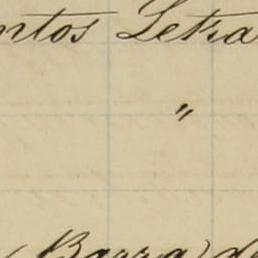 ntos Letra
"
Barra de